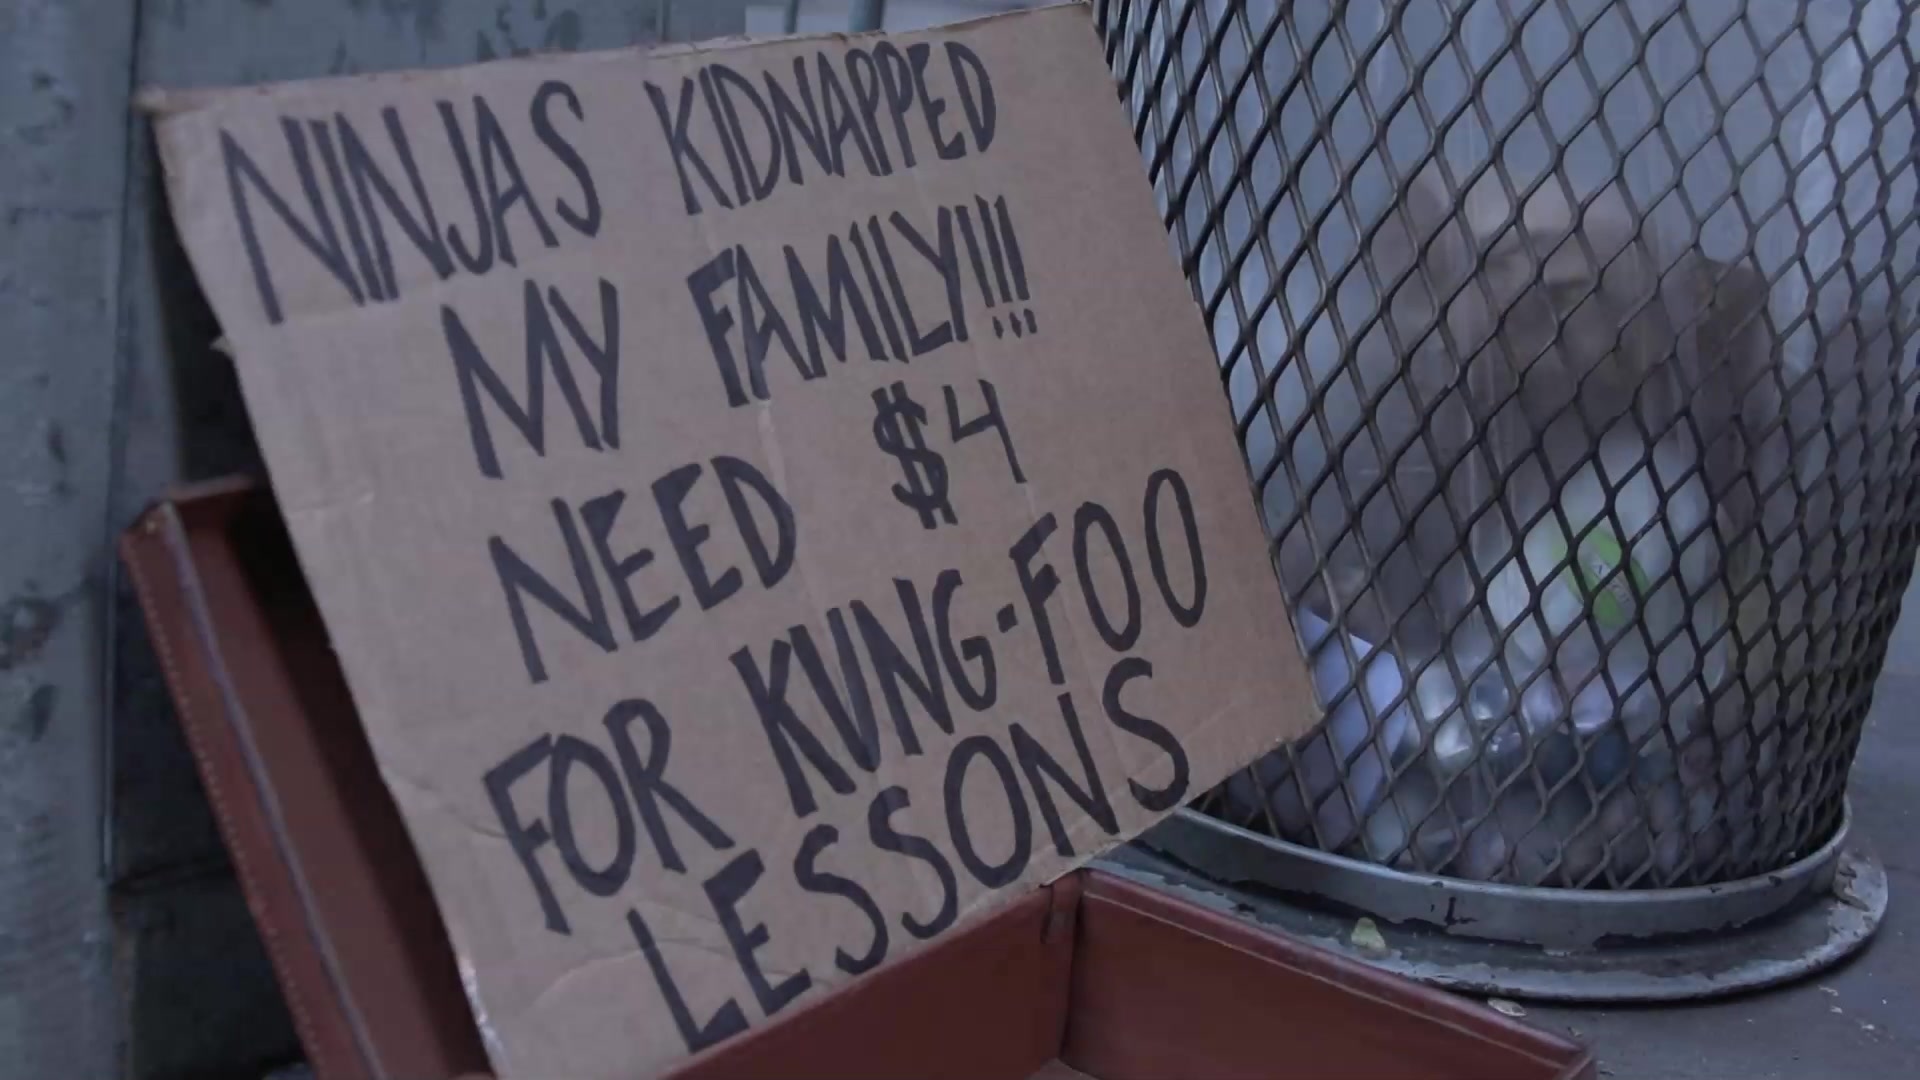 NINJAS KIDNAPPED
MY FAMILY!!!
NEED $4
FOR KUNG-FOO
LESSONS